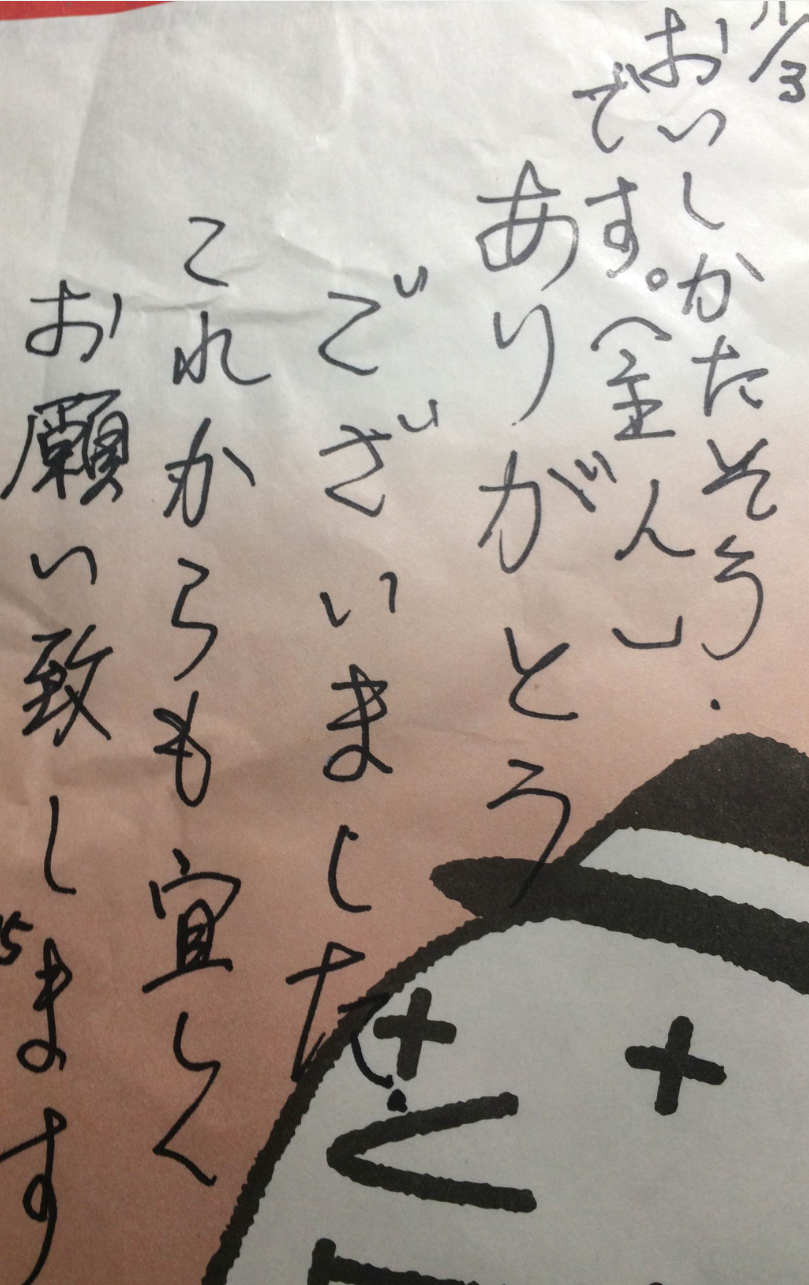 11/3
おいしかたそう.
です。(全ん)
ありがとう
ございました.
これからも宜しく
お願い致します